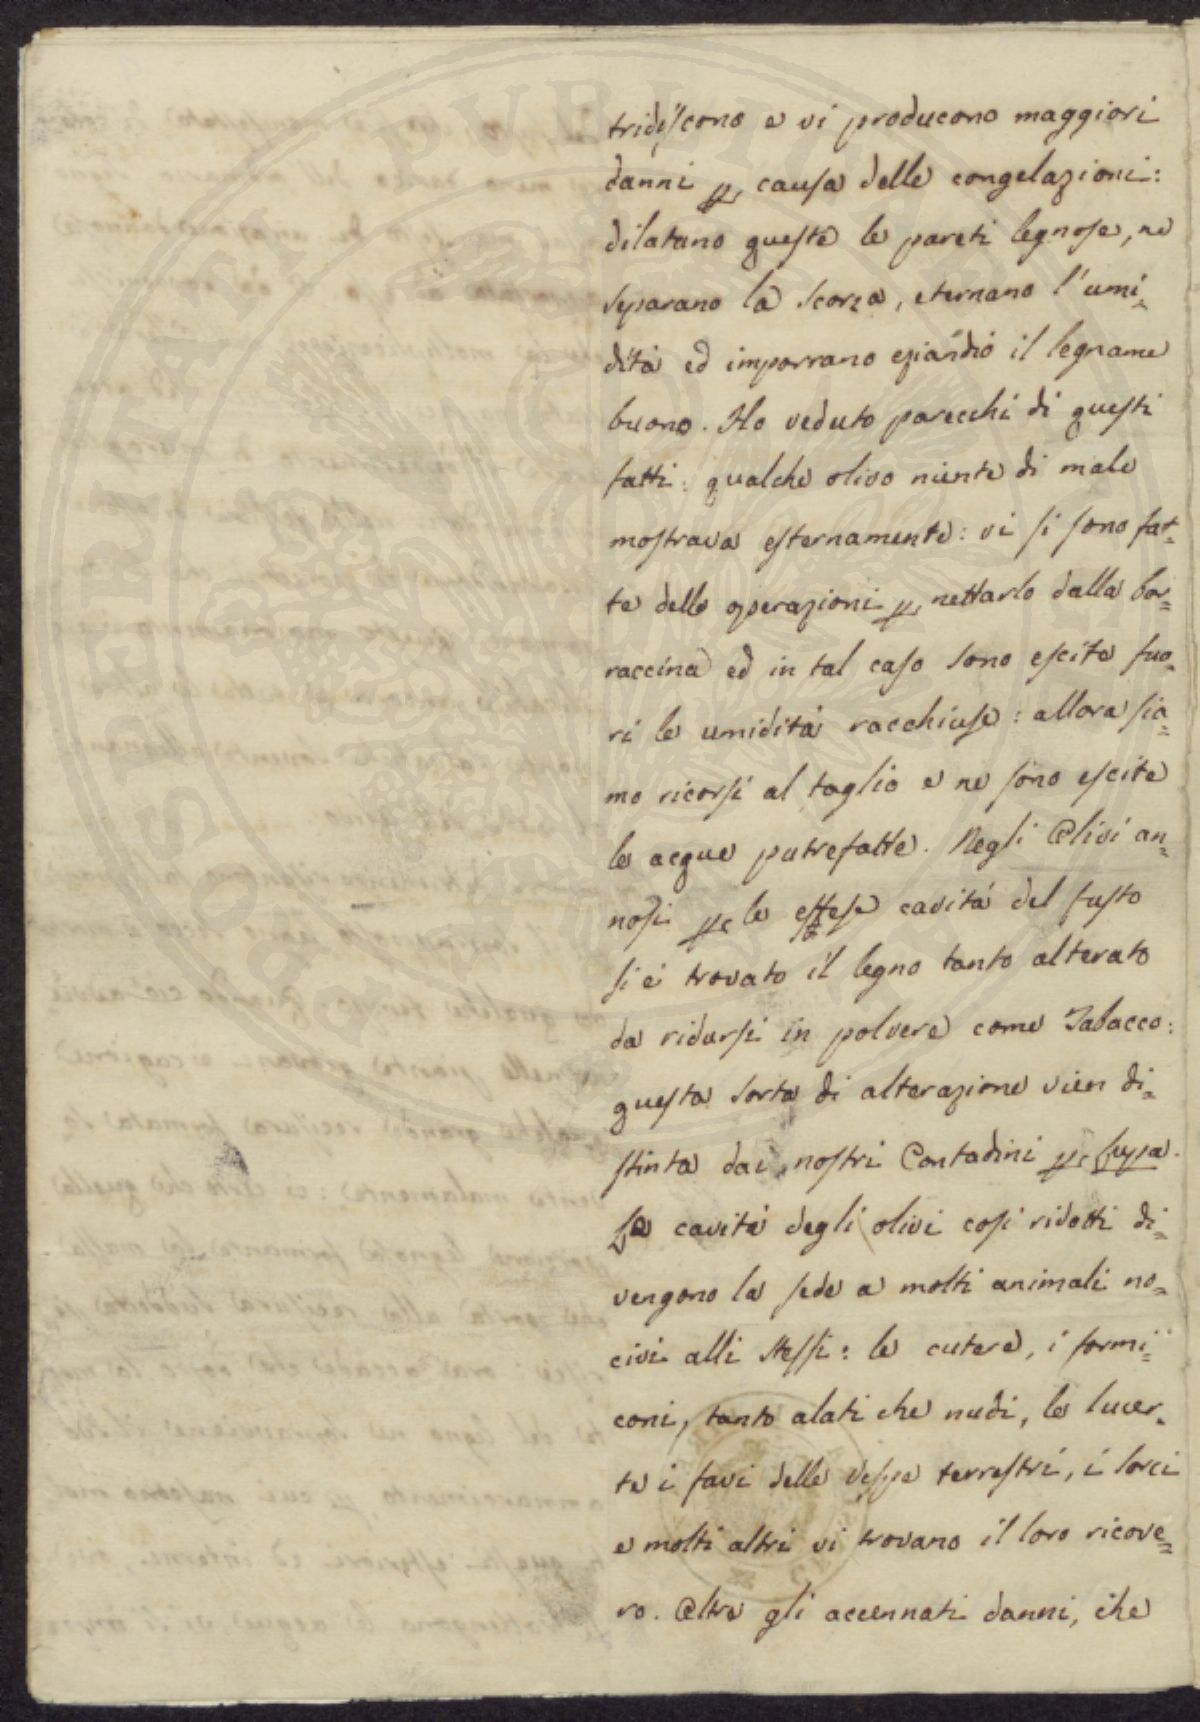 tridiscono e vi producono maggiori
danni p causa delle congelazioni:
dilatano queste le pareti legnose, ne
separano la scorza, eternano l'umi=
dità ed imporrano eziandio il legname
buono. Ho veduto parecchi di questi
fatti: qualche olivo niente di male
mostrava esternamente: vi si sono fat=
te delle operazioni p nettarlo dalla bor=
raccina ed in tal caso sono escite fuo=
ri le umidità racchiuse: allora sia=
mo ricorsi al taglio e ne sono escite
le acque putrefatte. Negli Olivi an=
nosi p le estese cavità del fusto
si è trovato il legno tanto alterato
da ridursi in polvere come Tabacco:
questa sorta di alterazione vien di=
stinta dai nostri Contadini p lupa.
Le cavità degli olivi così ridotti di=
vengono la sede a molti animali no=
civi alli stessi: le cutere, i formi=
coni, tanto alati che nudi, le lucer=
te i favi delle vespe terrestri, i sorci
e molti altri vi trovano il loro ricove=
ro. Oltre gli accennati danni, che